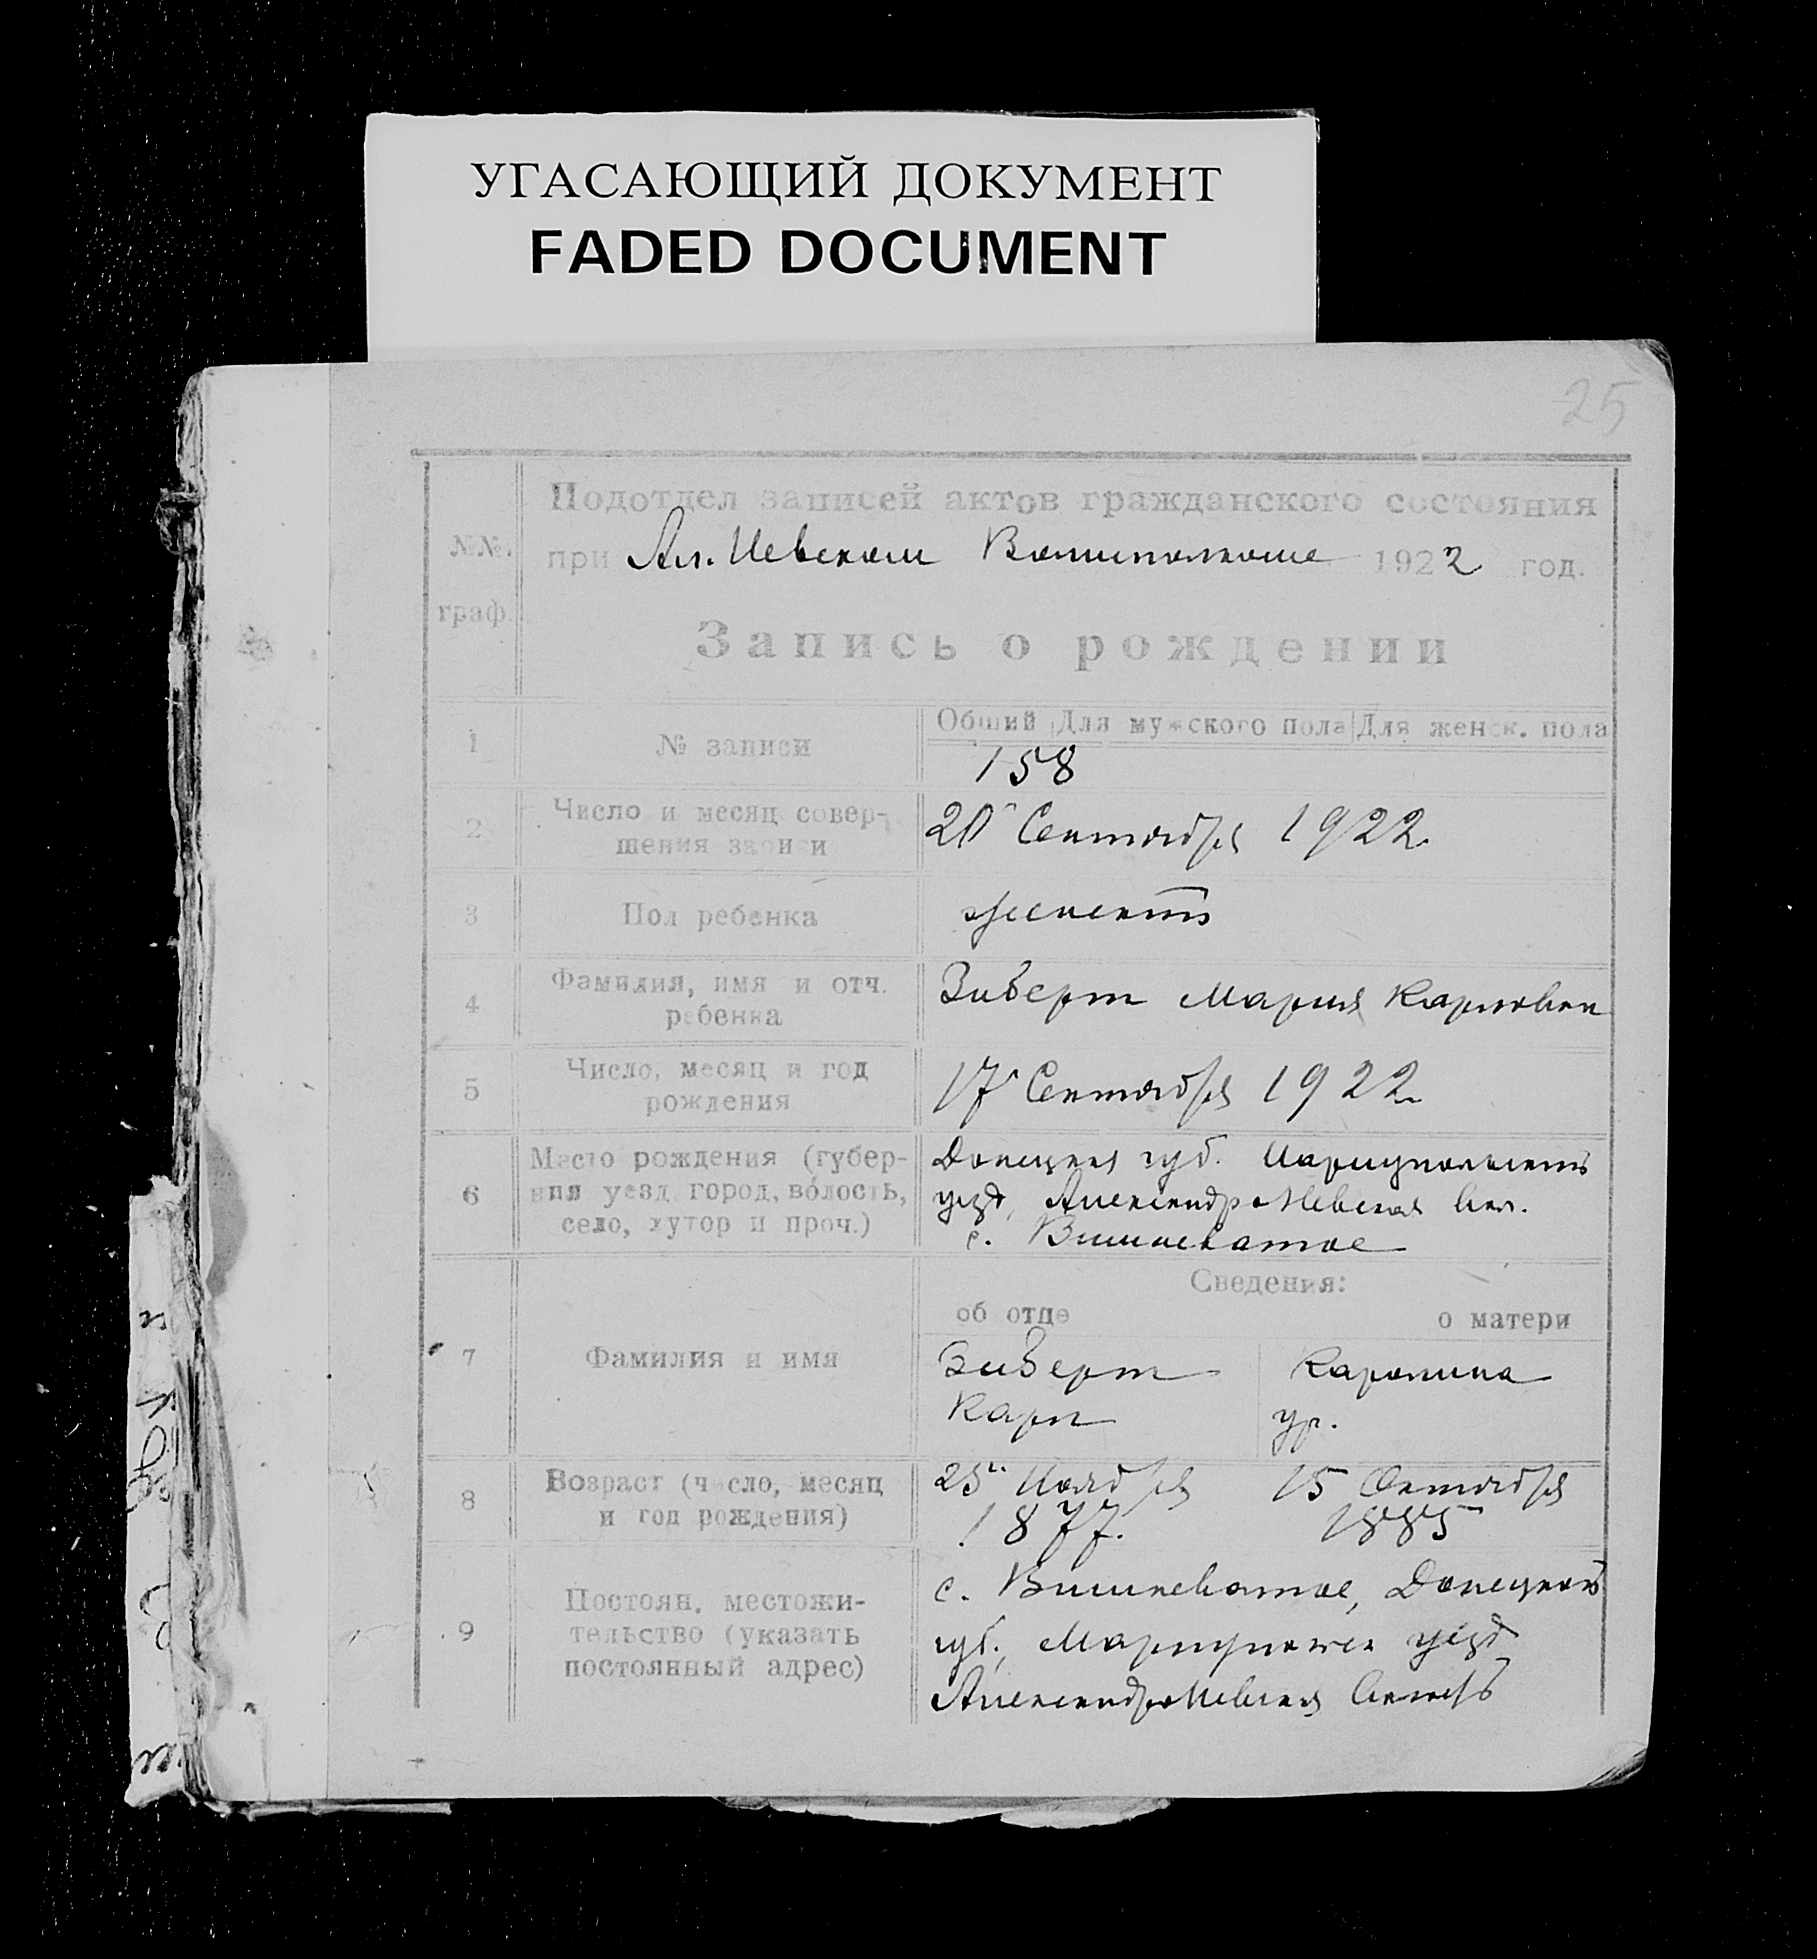 УГАСАЮЩИЙ ДОКУМЕНТ
FADED DOCUMENT
25
№№. граф.
Подотдел записей актов гражданского состояния
при Ал. Невском Волисполкоме 1922 год.
Запись о рождении
1 № записи
Общий Для мужского пола Для женск. пола
158
2 Число и месяц совер-
шения записи
20 Сентября 1922.
3 Пол ребенка
женский
4 Фамилия, имя и отч.
ребенка
Зиберт Мария Карповна
5 Число, месяц и год
рождения
17 Сентября 1922.
6 Место рождения (губер-
ния уезд, город, волость,
село, хутор и проч.)
Донецкая губ. Мариупольский
уезд, Александро Невская вол.
с. Вишневатое
Сведения:
об отце о матери
7 Фамилия и имя
Зиберт
Карп
Каролина
ур.
8 Возраст (число, месяц
и год рождения)
25 Ноября
1877.
15 Октября
1885
9 Постоян. местожи-
тельство (указать
постоянный адрес)
с. Вишневатое, Донецкой
губ., уезд
Александро Невская